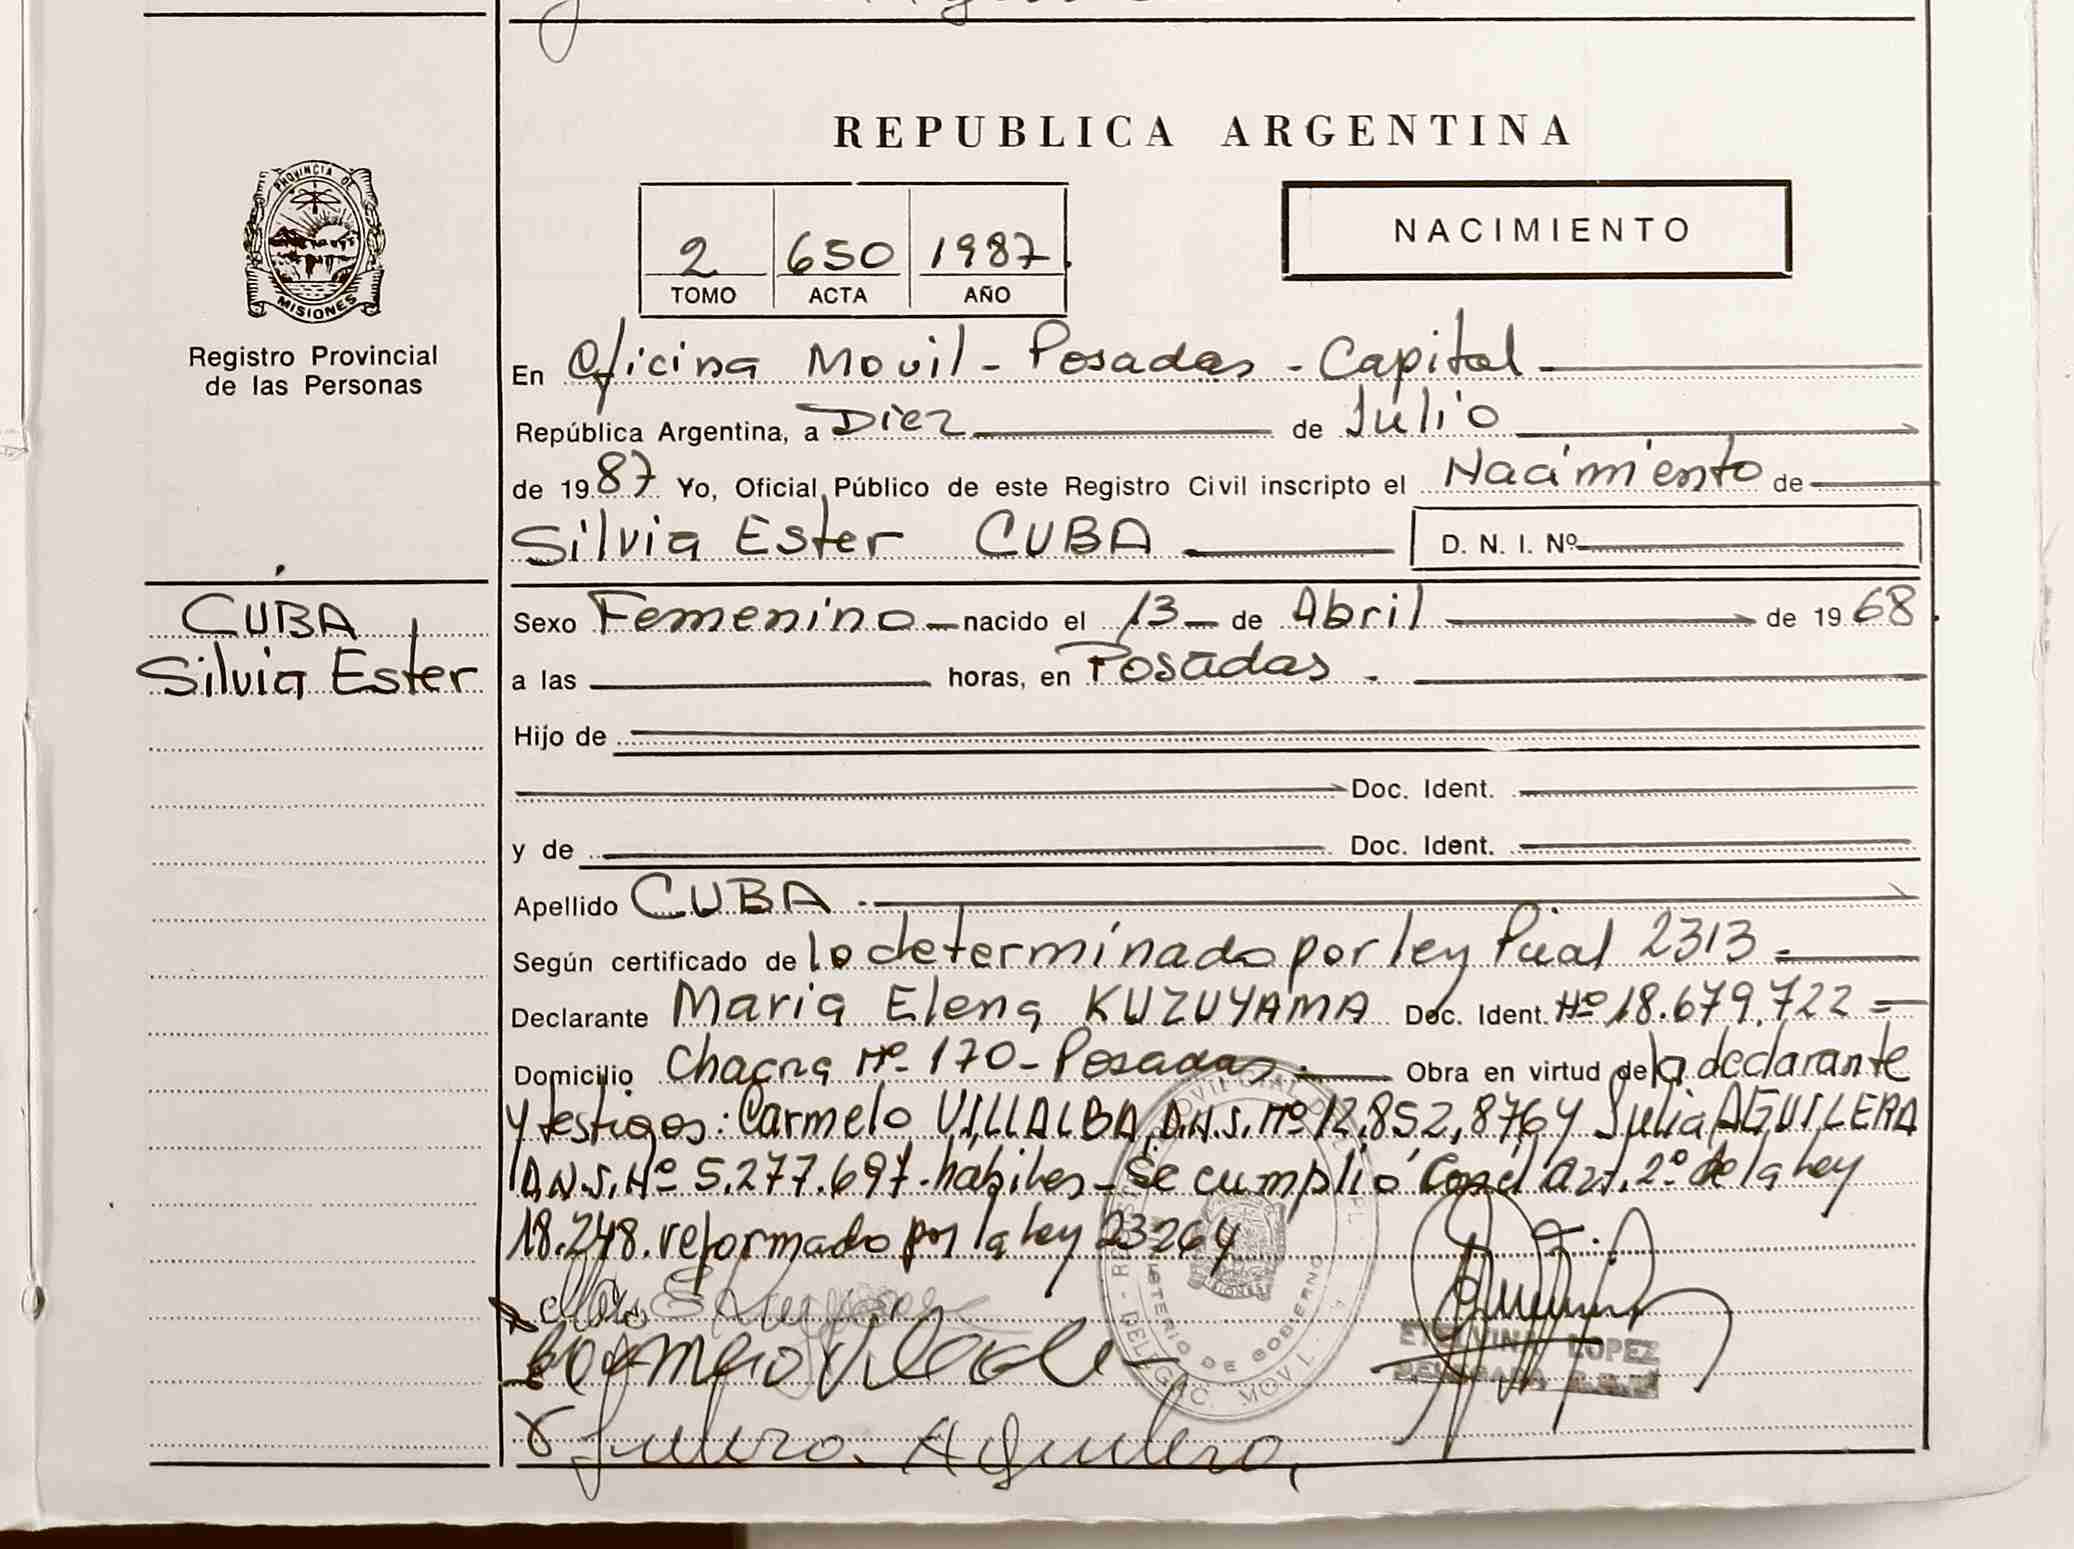 REPUBLICA ARGENTINA
PROVINCIA DE
MISIONES
Registro Provincial
de las Personas
2 650 1987
TOMO ACTA AÑO
NACIMIENTO
En Oficina Movil - Posadas - Capital
República Argentina, a Diez de Julio
de 1987 Yo, Oficial Público de este Registro Civil inscripto el Nacimiento de
Silvia Ester CUBA D. N. I. Nº
CUBA
Silvia Ester
Sexo Femenino nacido el 13 de Abril de 1968
a las horas, en Posadas.
Hijo de
Doc. Ident.
y de Doc. Ident.
Apellido CUBA
Según certificado de lo determinado por ley Pcial 2313
Declarante Maria Elena KUZUYAMA Doc. Ident. Nº 18.679.722
Domicilio Chacra Nº 170 - Posadas. Obra en virtud de la declarante
y testigos: Carmelo VILLALBA, D.N.I. Nº 12.852,876 y Julia AGUILERA
D.N.I. Nº 5.277.697. hábiles - Se cumplió con el Art. 2º de la ley
18.248. reformado por la ley 23264
ETELVINA LOPEZ
DELEGADA
MINISTERIO DE GOBIERNO
DELEGAC. MOVIL